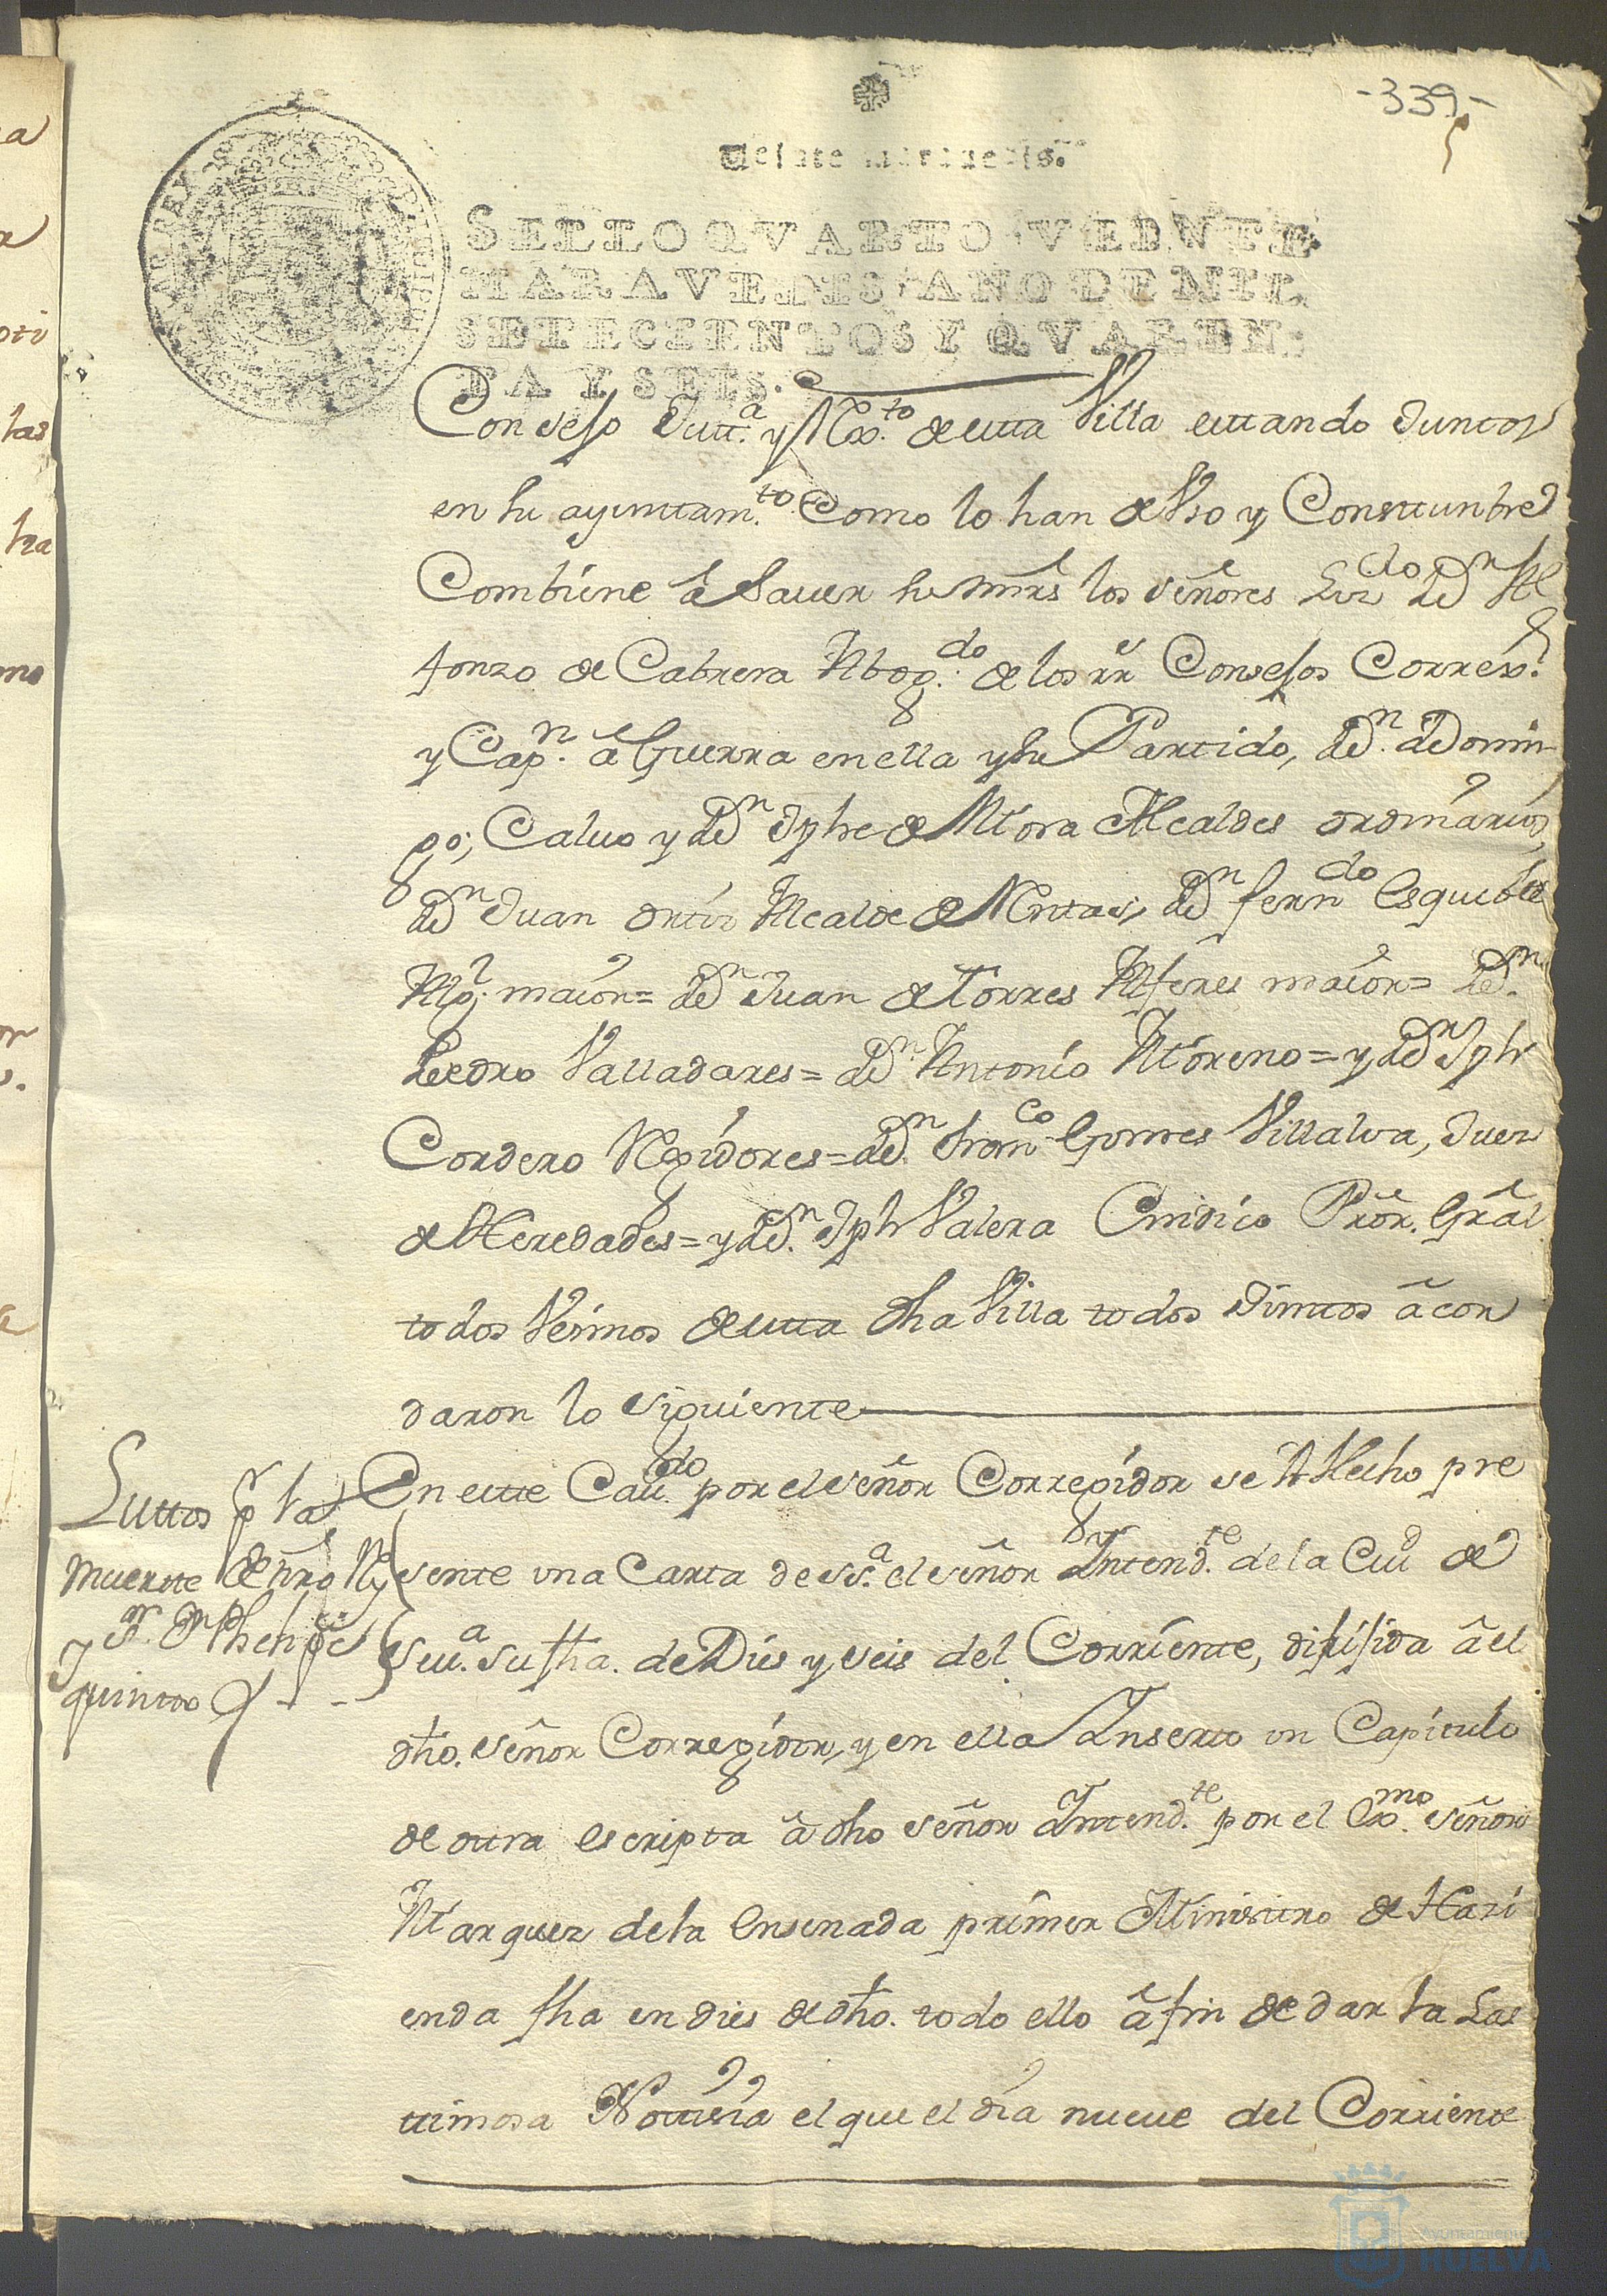 -339-
Veinte maravedis.
SELLO QVARTO, VEINTE
MARAVEDIS, AÑO DE MIL
SETECIENTOS Y QVAREN-
TA Y SEIS.
Consejo Justt.ª y Rex.to de esta Villa estando Juntos
en su ayuntam.to Como lo han de Vso y Constumbre
Combiene â Sauer su mrs los señores Liz.do Dn Al
fonzo de Cabrera Abog.do de los rr Consejos Correx.r
y Cap.n â Guerra en ella y su Partido, Dn. Domin
go, Caluo y Dn Jphe de Mora Alcaldes ordinarios,
Dn Juan ortiz Alcalde de Rentas, Dn fern.do Esquibel
Alg.l maior = Dn Juan de Torres Alferes maior = Dn.
Pedro Valladares = Dn. Antonio Moreno = y Dn Jph
Cordero Regidores = Dn. Fran.co Gomes Villalva, Juez
de Heredades = y Dn. Jph Valera Cindico Prôr. Grâl
todos Vesinos de esta dha Villa todos Juntos âcor
daron lo siguiente
Luttos p.r la
muerte de nrô Rey
Sr. Dn Phelipe
quinto
En este Cau.do por el señor Corregidor se ha Hecho pre
sente una Carta de Ss.ª el señor Intend.te de la Ciu.d de
Seu.ª su fha. de Dies y seis del Corriente, dirijida â el
dho. señor Corregidor, y en ella Inserto un Capitulo
de otra escripta â dho señor Intend.te por el Ex.mo señor
Marquez de la Ensenada primer Ministro de Hazi
enda fha en dies de dho. todo ello â fin de dar la Las
timosa Notisia el que el dia nueue del Corriente
Ayuntamiento
HUELVA